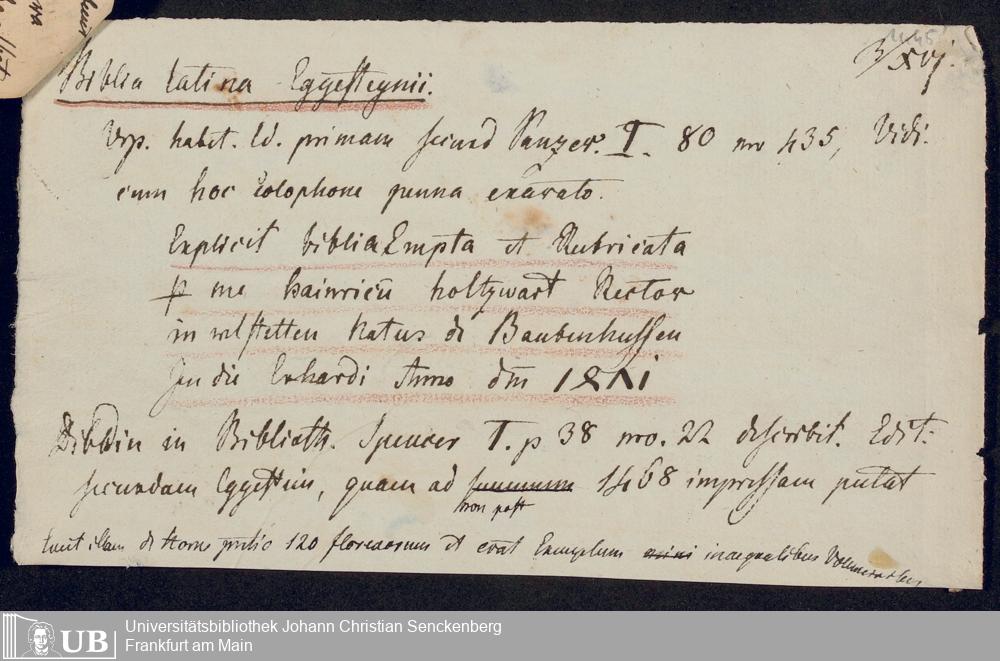 Biblia latina Eggesteynii.
Urp. habet. Ed. primam secund Panzer. T. 80 no 435, Vidi.
cum hoc Colophone penna exarato.
Explicit biblia Empta et Rubricata
p me hainricū holtzwart Rector
in wlstetten Natus de Baubenhussen
In die Erhardi Anno dm 1471
Dibdin in Biblioth. Spencer T. p 38 no. 22 describit. Edit:
secundam Eggestein, quam ad summum 1468 impressam putat
non post
illam de Home pretio 120 florenorum et erat Exemplum inaequalibus
UB
Universitätsbibliothek Johann Christian Senckenberg
Frankfurt am Main